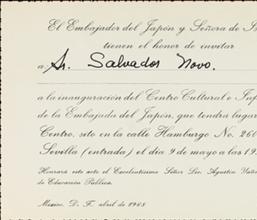 El Embajador del Japón y Señora de
tienen el honor de invitar
a: Sr. Salvador Novo.
a la inauguración del Centro Cultural e
de la Embajada del Japón, que tendrá lugar
Centro, sito en la calle Hamburgo No.
Sevilla (entrada) el día 9 de mayo a las
Honrará este acto el Excelentísimo Señor Lic. Agustín
de Educación Pública.
México, D. F. abril de